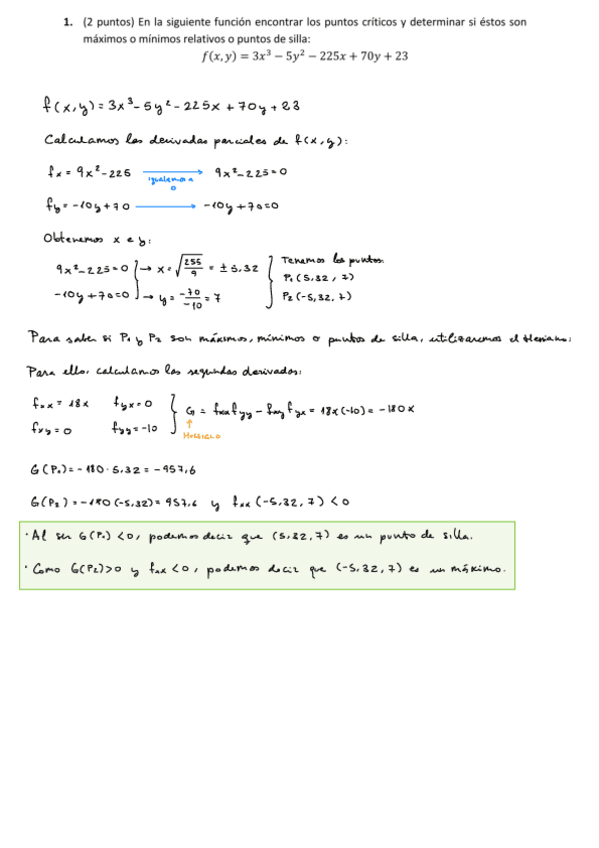 1. (2 puntos) En la siguiente función encontrar los puntos críticos y determinar si éstos son
máximos o mínimos relativos o puntos de silla:
f(x, y) = 3x³ − 5y² − 225x + 70y + 23
f(x,y) = 3x³ - 5y² - 225x + 70y + 23
Calculamos las derivadas parciales de f(x,y):
fx = 9x² - 225 igualamos a 0 9x² - 225 = 0
fy = -10y + 70 -10y + 70 = 0
Obtenemos x e y:
9x² - 225 = 0 → x = √(255/9) = ± 5,32
-10y + 70 = 0 → y = -70/-10 = 7
Tenemos los puntos:
P₁ (5,32, 7)
P₂ (-5,32, 7)
Para saber si P₁ y P₂ son máximos, mínimos o puntos de silla, utilizaremos el Hessiano:
Para ello, calculamos las segundas derivadas:
fxx = 18x fyx = 0
fxy = 0 fyy = -10
G = fxx fyy - fxy fyx = 18x (-10) = -180x
↑
HESSIANO
G(P₁) = -180 · 5,32 = -957,6
G(P₂) = -180 (-5,32) = 957,6 y fxx (-5,32, 7) < 0
· Al ser G(P₁) < 0, podemos decir que (5,32, 7) es un punto de silla.
· Como G(P₂) > 0 y fxx < 0, podemos decir que (-5,32, 7) es un máximo.